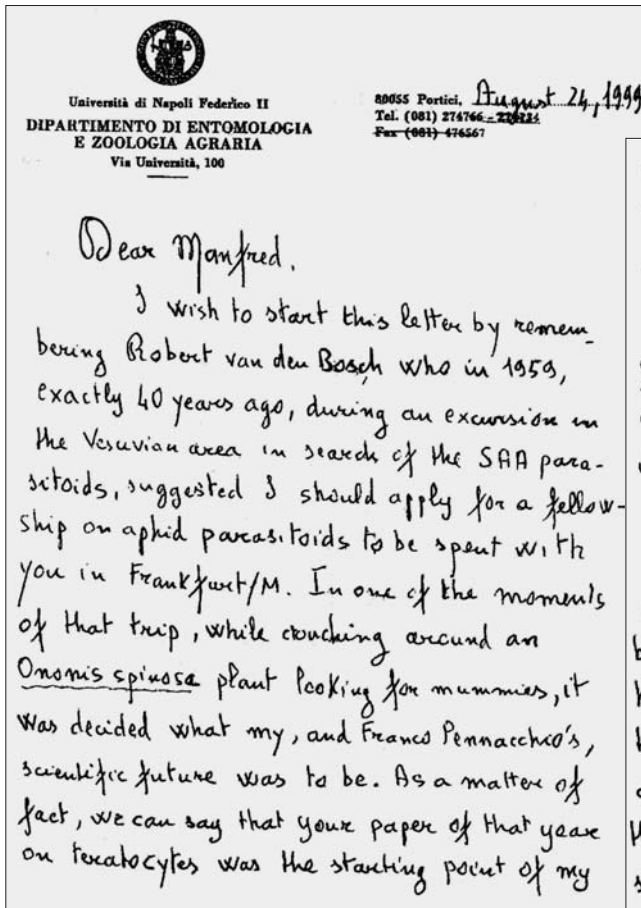 Università di Napoli Federico II
DIPARTIMENTO DI ENTOMOLOGIA
E ZOOLOGIA AGRARIA
Via Università, 100
80055 Portici, August 24, 1999
Tel. (081) 274766 -
Fax (081) 476567
Dear Manfred.
I wish to start this letter by remem-
bering Robert van den Bosch who in 1959,
exactly 40 years ago, during an excursion in
the Vesuvian area in search of the SAA para-
sitoids, suggested I should apply for a fellow-
ship on aphid parasitoids to be spent with
you in Frankfurt/M. In one of the moments
of that trip, while crouching around an
Ononis spinosa plant looking for mummies, it
was decided what my, and Franco Pennacchio's,
scientific future was to be. As a matter of
fact, we can say that your paper of that year
on teratocytes was the starting point of my